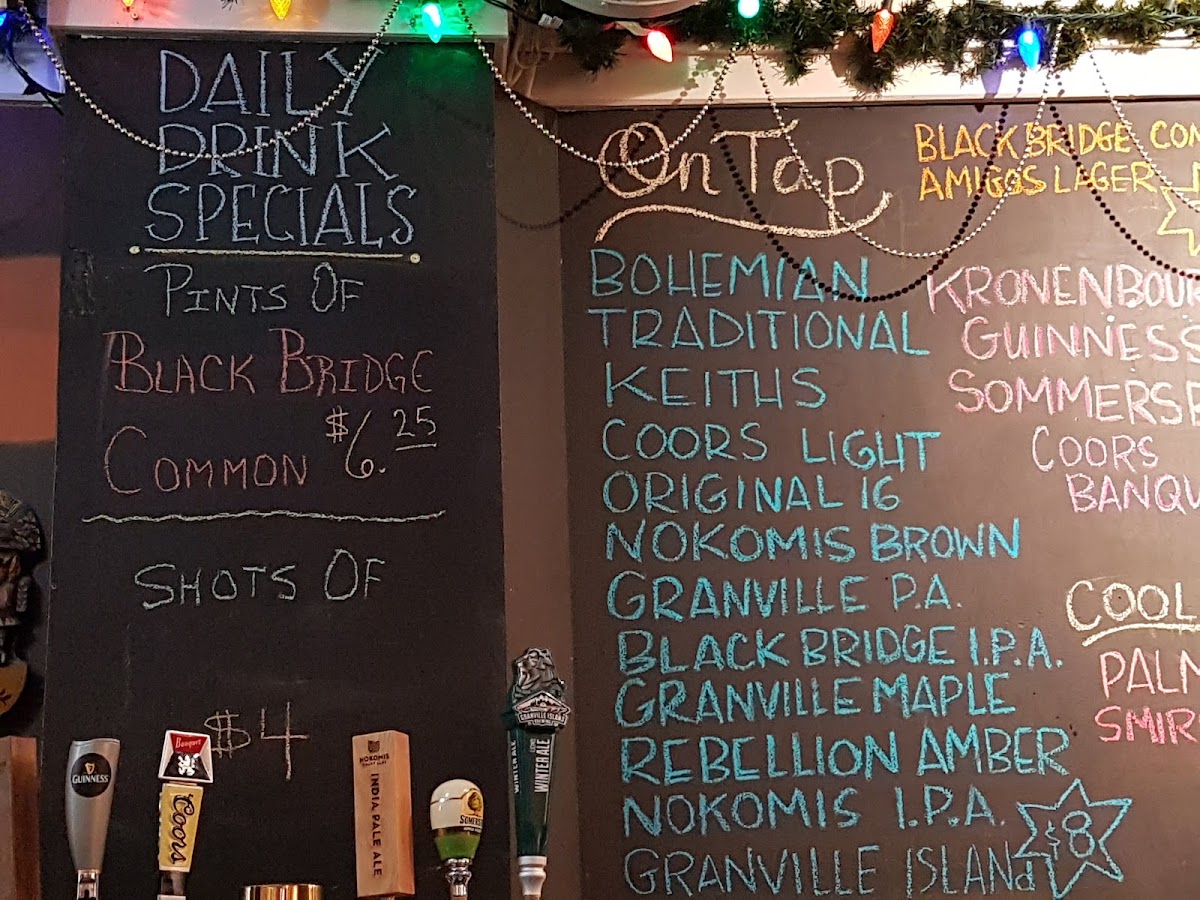 DAILY
DRINK
SPECIALS
PINTS OF
BLACK BRIDGE
COMMON $6.25
SHOTS OF
$4
On Tap
BOHEMIAN
TRADITIONAL
KEITHS
COORS LIGHT
ORIGINAL 16
NOKOMIS BROWN
GRANVILLE P.A.
BLACK BRIDGE I.P.A.
GRANVILLE MAPLE
REBELLION AMBER
NOKOMIS I.P.A.
GRANVILLE ISLANd
$8
BLACK BRIDGE COM
AMIGOS LAGER
KRONENBOU
GUINNESS
SOMMERSE
COORS
BANQU
COOL
PALM
SMIR
GUINNESS
Banquet
Coors
NOKOMIS
INDIA PALE ALE
SOMERS
GRANVILLE ISLAND
BREWING
WINTER ALE
WINTER ALE